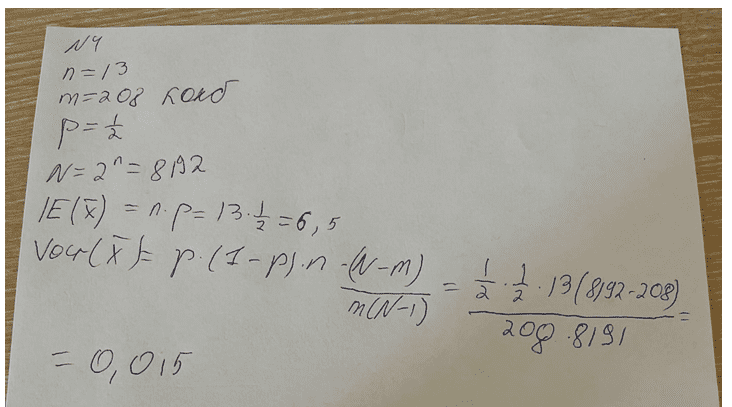 N4
n=13
m=208 комб
p=1/2
N=2ⁿ=8192
IE(x̄) = n·p=13·1/2=6,5
Var(x̄)= p·(1-p)·n·(N-m)/m(N-1) = 1/2·1/2·13(8192-208)/208·8191 =
= 0,015